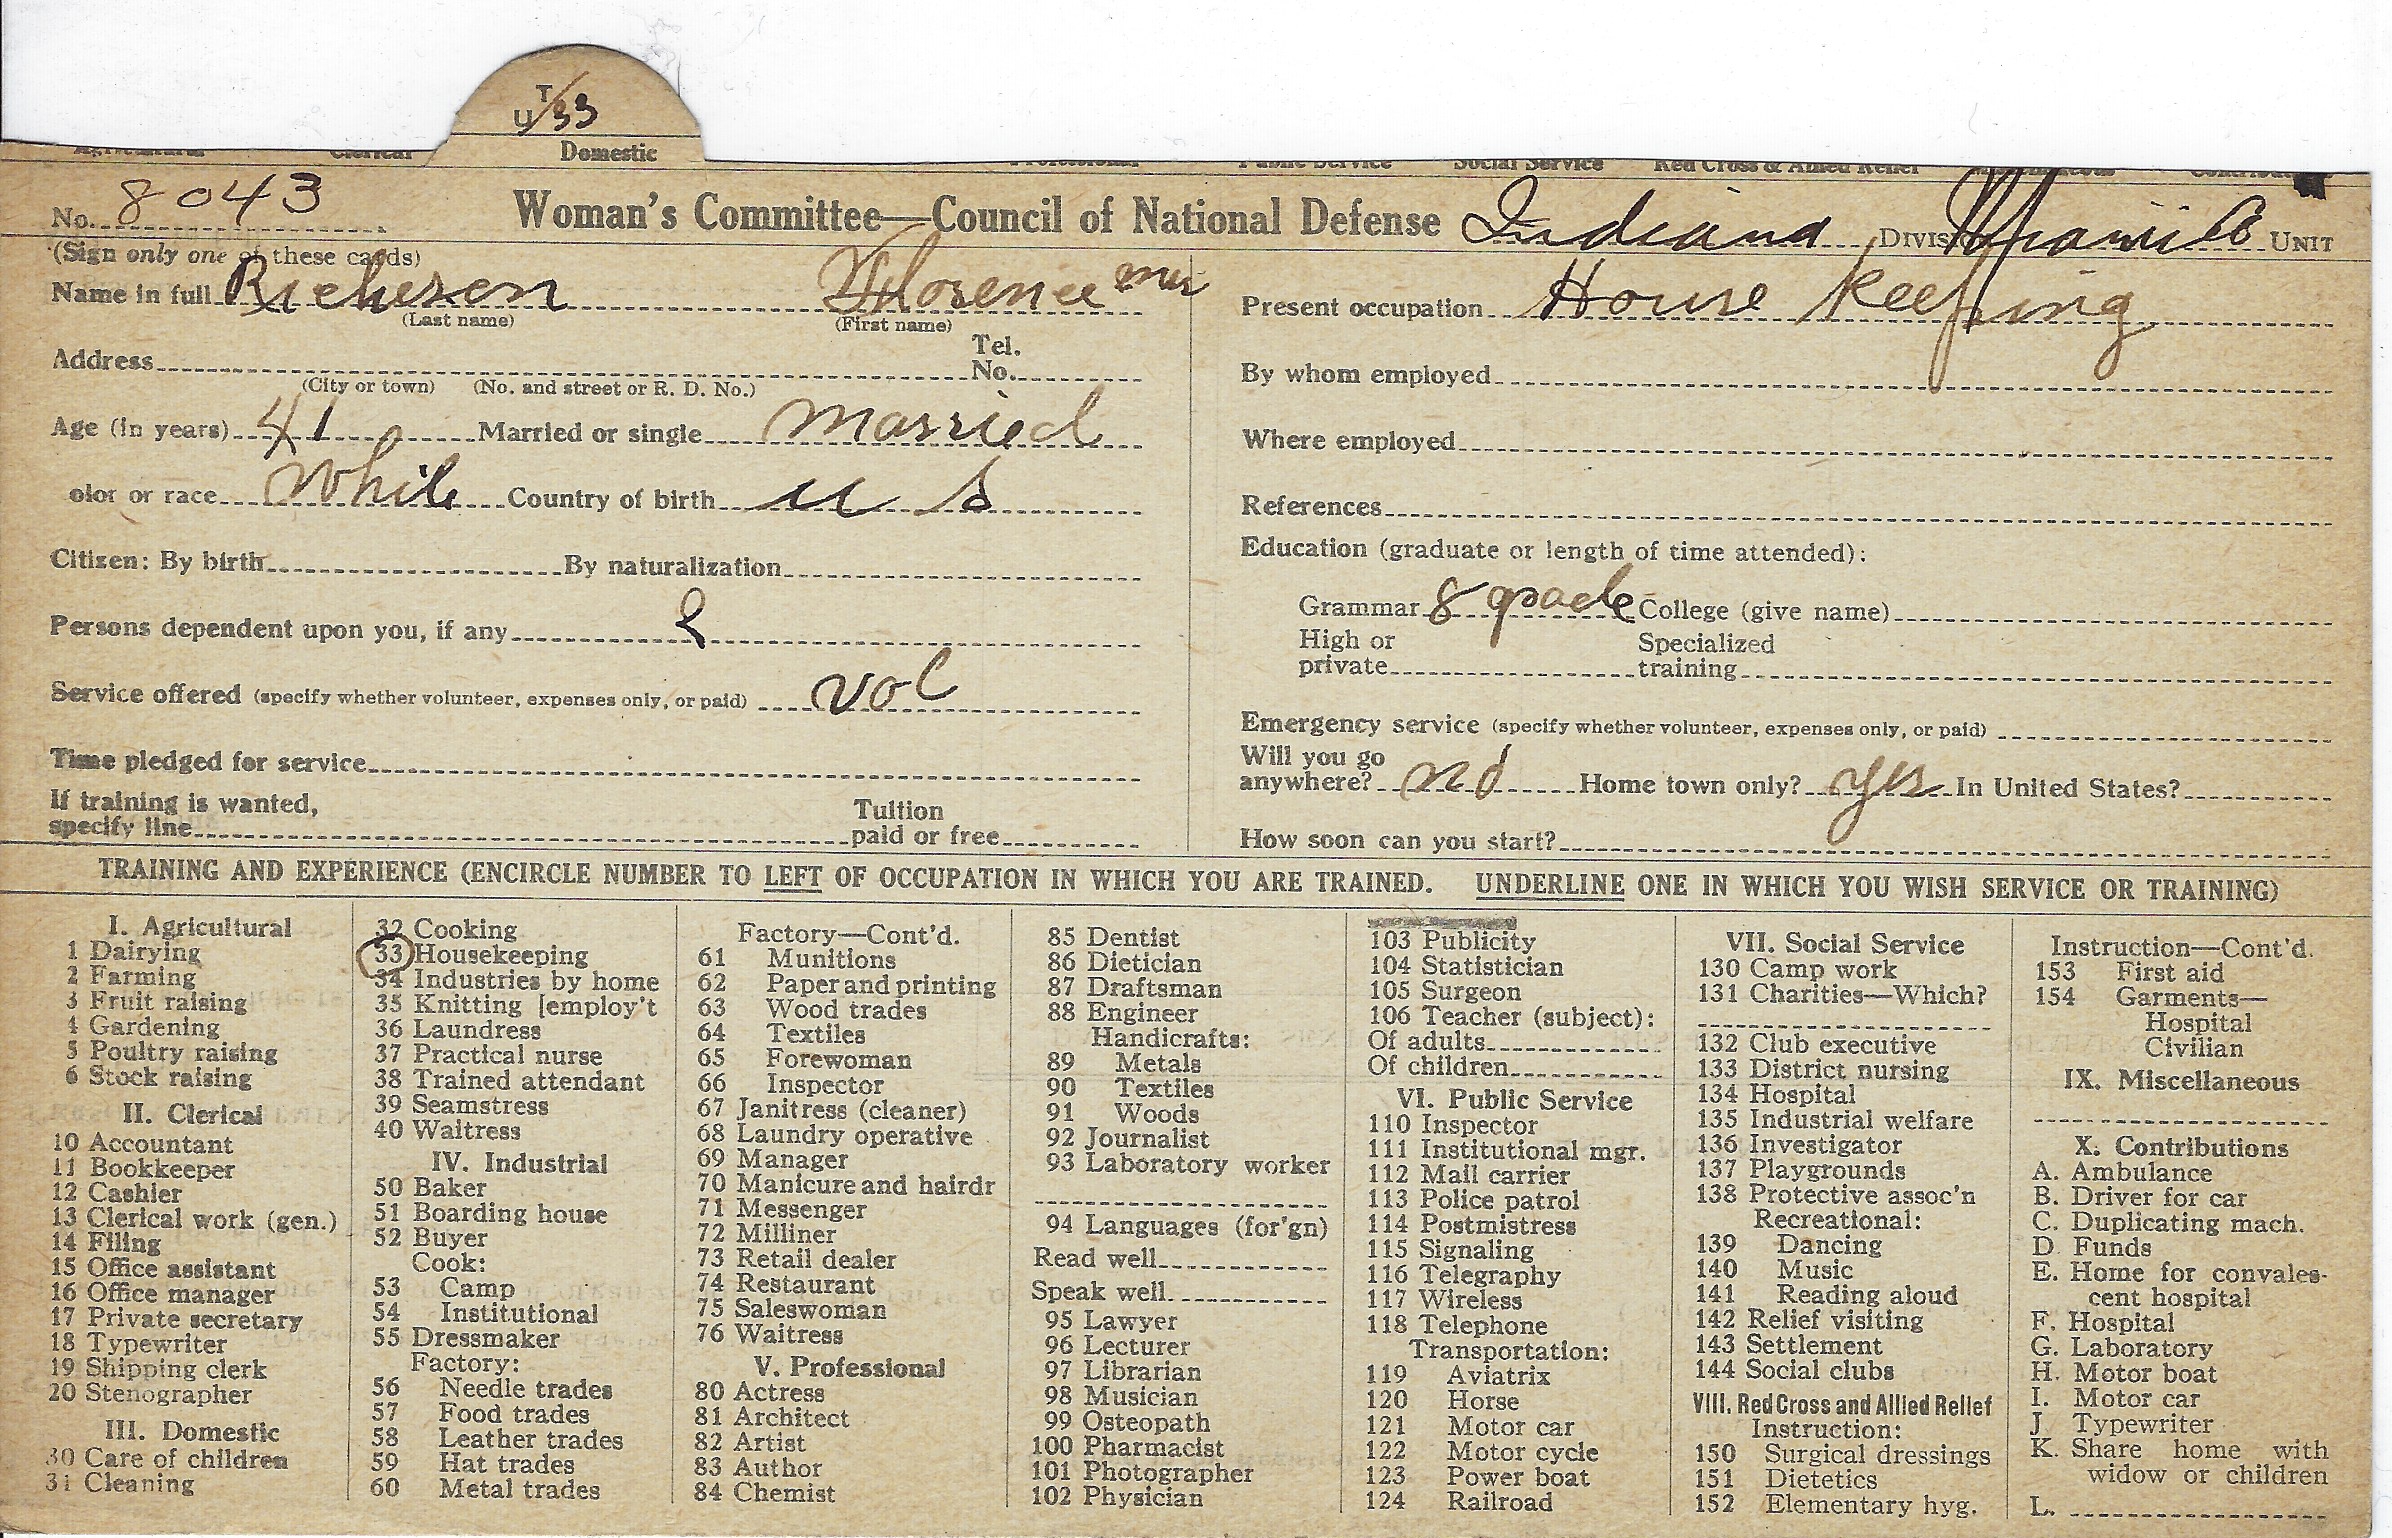 T
U/33
Domestic
Social Service Red Cross & Allied Relief
No. 8043 Woman's Committee—Council of National Defense Indiana Miami Co UNIT
(Sign only one of these cards)
Name in full Richeson Florence Mrs
(Last name) (First name)
Address Tel. No.
(City or town) (No. and street or R. D. No.)
Age (in years) 41 Married or single married
olor or race White Country of birth U S
Citizen: By birth By naturalization
Persons dependent upon you, if any
Service offered (specify whether volunteer, expenses only, or paid) vol
Time pledged for service
If training is wanted,
specify line Tuition paid or free
Present occupation House Keeping
By whom employed
Where employed
References
Education (graduate or length of time attended):
Grammar 8 grade College (give name)
High or private Specialized training
Emergency service (specify whether volunteer, expenses only, or paid)
Will you go
anywhere? no Home town only? yes In United States?
How soon can you start?
TRAINING AND EXPERIENCE (ENCIRCLE NUMBER TO LEFT OF OCCUPATION IN WHICH YOU ARE TRAINED. UNDERLINE ONE IN WHICH YOU WISH SERVICE OR TRAINING)
I. Agricultural
1 Dairying
2 Farming
3 Fruit raising
4 Gardening
5 Poultry raising
6 Stock raising
II. Clerical
10 Accountant
11 Bookkeeper
12 Cashier
13 Clerical work (gen.)
14 Filing
15 Office assistant
16 Office manager
17 Private secretary
18 Typewriter
19 Shipping clerk
20 Stenographer
III. Domestic
30 Care of children
31 Cleaning
32 Cooking
33 Housekeeping
34 Industries by home
35 Knitting [employ't
36 Laundress
37 Practical nurse
38 Trained attendant
39 Seamstress
40 Waitress
IV. Industrial
50 Baker
51 Boarding house
52 Buyer
Cook:
53 Camp
54 Institutional
55 Dressmaker
Factory:
56 Needle trades
57 Food trades
58 Leather trades
59 Hat trades
60 Metal trades
Factory—Cont'd.
61 Munitions
62 Paper and printing
63 Wood trades
64 Textiles
65 Forewoman
66 Inspector
67 Janitress (cleaner)
68 Laundry operative
69 Manager
70 Manicure and hairdr
71 Messenger
72 Milliner
73 Retail dealer
74 Restaurant
75 Saleswoman
76 Waitress
V. Professional
80 Actress
81 Architect
82 Artist
83 Author
84 Chemist
85 Dentist
86 Dietician
87 Draftsman
88 Engineer
Handicrafts:
89 Metals
90 Textiles
91 Woods
92 Journalist
93 Laboratory worker
94 Languages (for'gn)
Read well
Speak well
95 Lawyer
96 Lecturer
97 Librarian
98 Musician
99 Osteopath
100 Pharmacist
101 Photographer
102 Physician
103 Publicity
104 Statistician
105 Surgeon
106 Teacher (subject):
Of adults
Of children
VI. Public Service
110 Inspector
111 Institutional mgr.
112 Mail carrier
113 Police patrol
114 Postmistress
115 Signaling
116 Telegraphy
117 Wireless
118 Telephone
Transportation:
119 Aviatrix
120 Horse
121 Motor car
122 Motor cycle
123 Power boat
124 Railroad
VII. Social Service
130 Camp work
131 Charities—Which?
132 Club executive
133 District nursing
134 Hospital
135 Industrial welfare
136 Investigator
137 Playgrounds
138 Protective assoc'n
Recreational:
139 Dancing
140 Music
141 Reading aloud
142 Relief visiting
143 Settlement
144 Social clubs
VIII. Red Cross and Allied Relief
Instruction:
150 Surgical dressings
151 Dietetics
152 Elementary hyg.
Instruction—Cont'd.
153 First aid
154 Garments—
Hospital
Civilian
IX. Miscellaneous
X. Contributions
A. Ambulance
B. Driver for car
C. Duplicating mach.
D Funds
E. Home for convales-
cent hospital
F. Hospital
G. Laboratory
H. Motor boat
I. Motor car
J. Typewriter
K. Share home with
widow or children
L.